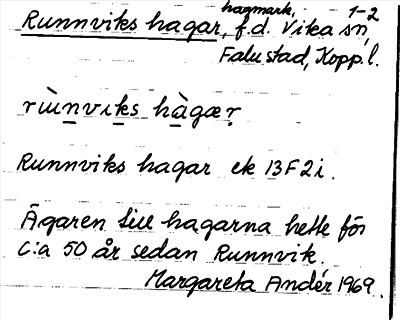 hagmark, 1-2
Runnviks hagar, f.d. Vika sn,
Falu stad, Kopp. l.
rùnviks hàgær
Runnviks hagar ek 13F2i.
Ägaren till hagarna hette för
c:a 50 år sedan Runnvik.
Margareta Andér 1969.